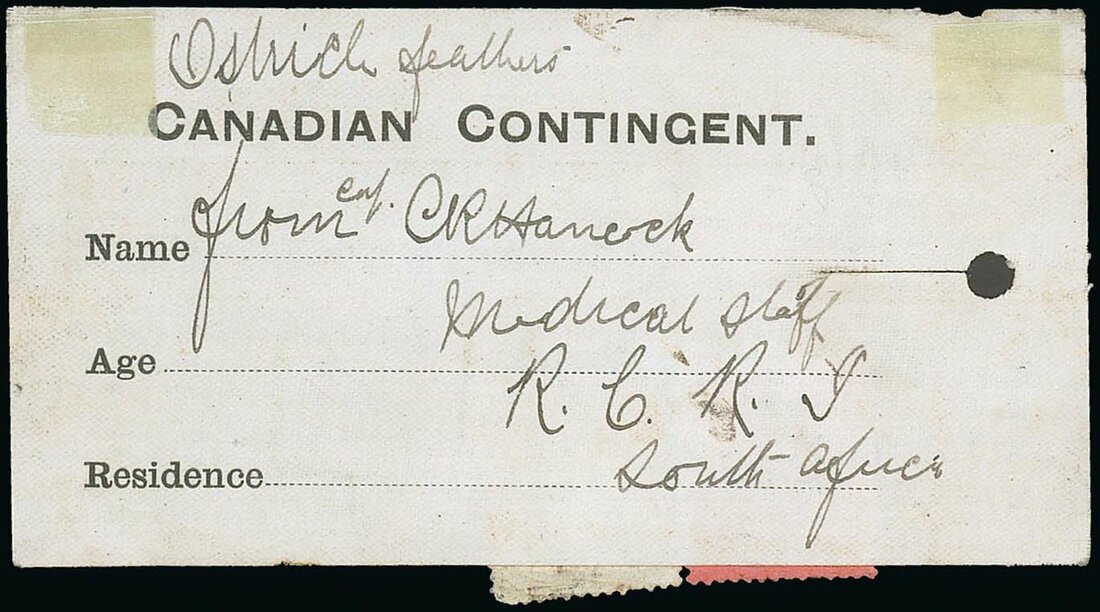 Ostrich feathers
CANADIAN CONTINGENT.
Name from Cap. CR Hancock
Medical Staff
Age
R. C. R. I
Residence South Africa